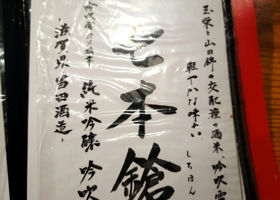 玉栄と山田錦の交配種の酒米 吟吹雪
軽やかな味わい
しちほん
七本鎗
純米吟醸 吟吹
滋賀県冨田酒造